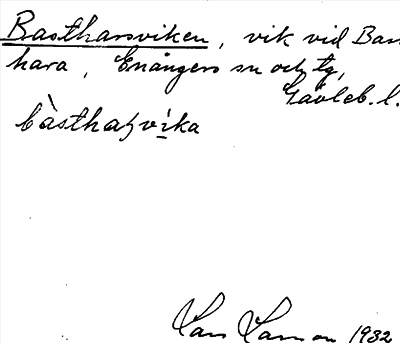 Bastharsviken, vik vid Bast
hara, Enångers sn och tg,
Gävleb. l.
bàsthaʒvi̱ka
Lars Larsson 1932